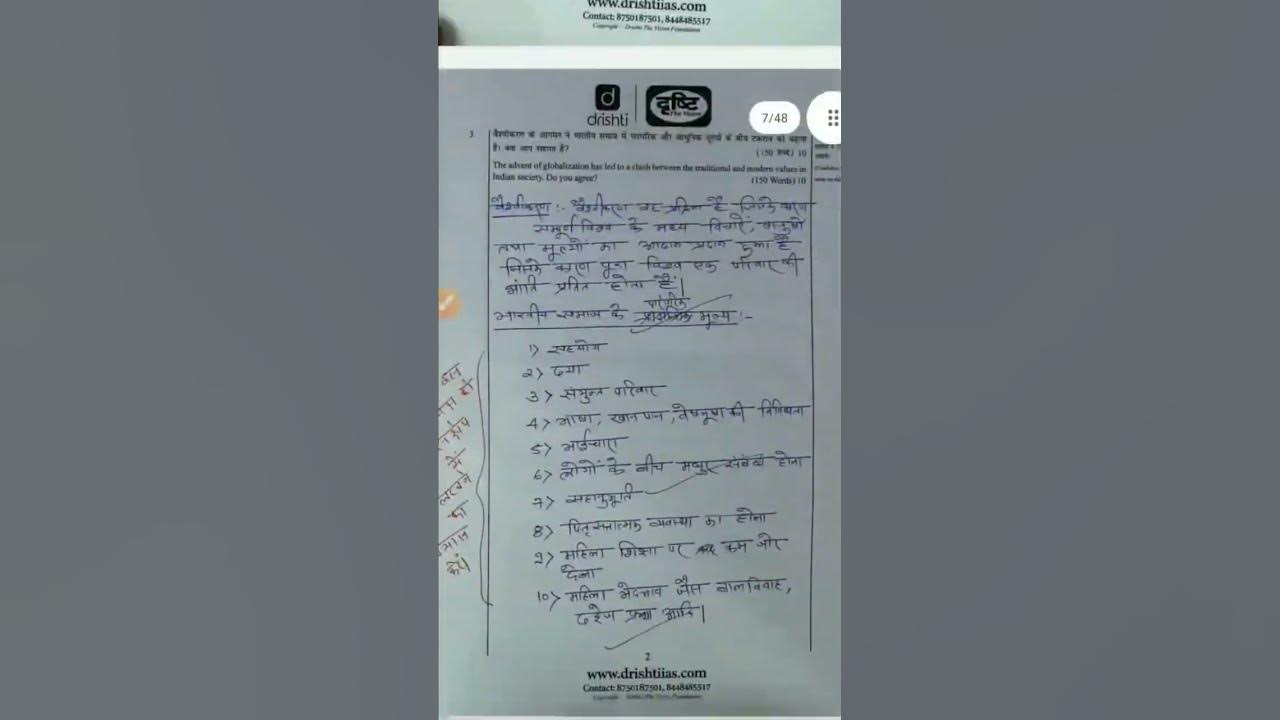 www.drishtiias.com
Contact: 8750187501, 8448485517
Copyright - Drishti The Vision Foundation
drishti
दृष्टि
The Vision
7/48
3. वैश्वीकरण के आगमन ने भारतीय समाज में पारंपरिक और आधुनिक मूल्यों के बीच टकराव को बढ़ाया
है। क्या आप सहमत हैं? (150 शब्द) 10
The advent of globalization has led to a clash between the traditional and modern values in
Indian society. Do you agree? (150 Words) 10
वैश्वीकरण :- वैश्वीकरण वह प्रक्रिया है जिसके कारण
सम्पूर्ण विश्व के मध्य विचारों, वस्तुओं
तथा मूल्यों का आदान प्रदान हुआ है
जिसके कारण पूरा विश्व एक परिवार की
भांति प्रतित होता है|
भारतीय समाज के मूल्य :-
1> सहयोग
2> दया
3> संयुक्त परिवार
4> भाषा, खानपान, वेषभूषा की विविधता
5> भाईचारा
6> लोगों के बीच मधुर संबंध होना
7> सहानुभूति
8> पितृसत्तात्मक व्यवस्था का होना
9> महिला शिक्षा पर कम जोर
देना
10> महिला भेदभाव जैसे बालविवाह,
दहेज प्रथा आदि|
में
का
करें
2
www.drishtiias.com
Contact: 8750187501, 8448485517
Copyright - Drishti The Vision Foundation